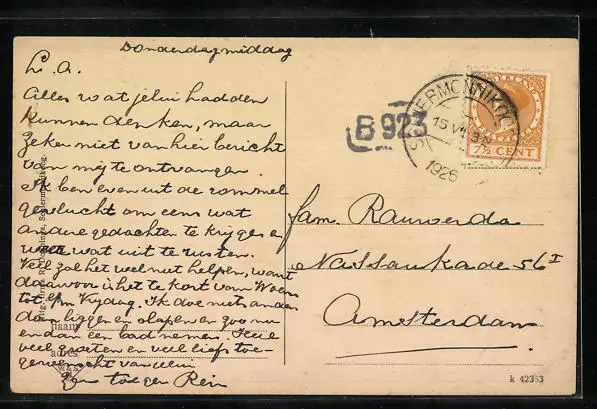 Donderdagmiddag
L. A.
Alles wat jelui hadden
kunnen denken, maar
zeker niet van hier bericht
van mij te ontvangen.
Ik ben even uit de rommel
gevlucht om eens wat
andere gedachten te krijgen
wat uit te rusten.
Veel zal het wel niet helpen, want
daarvoor is het te kort van Woens
tot Vrydag. Ik doe niets anders
dan liggen en slapen en zoo nu
en dan een bad nemen.
veel groeten en veel liefs toe-
gewenscht van
Rein
naam
adres
B 923
SCHIERMONNIKOOG
15 VII
1926
NEDERLAND
7½ CENT
Fam. Rauwerda
Nassaukade 56 I
Amsterdam
k 42353